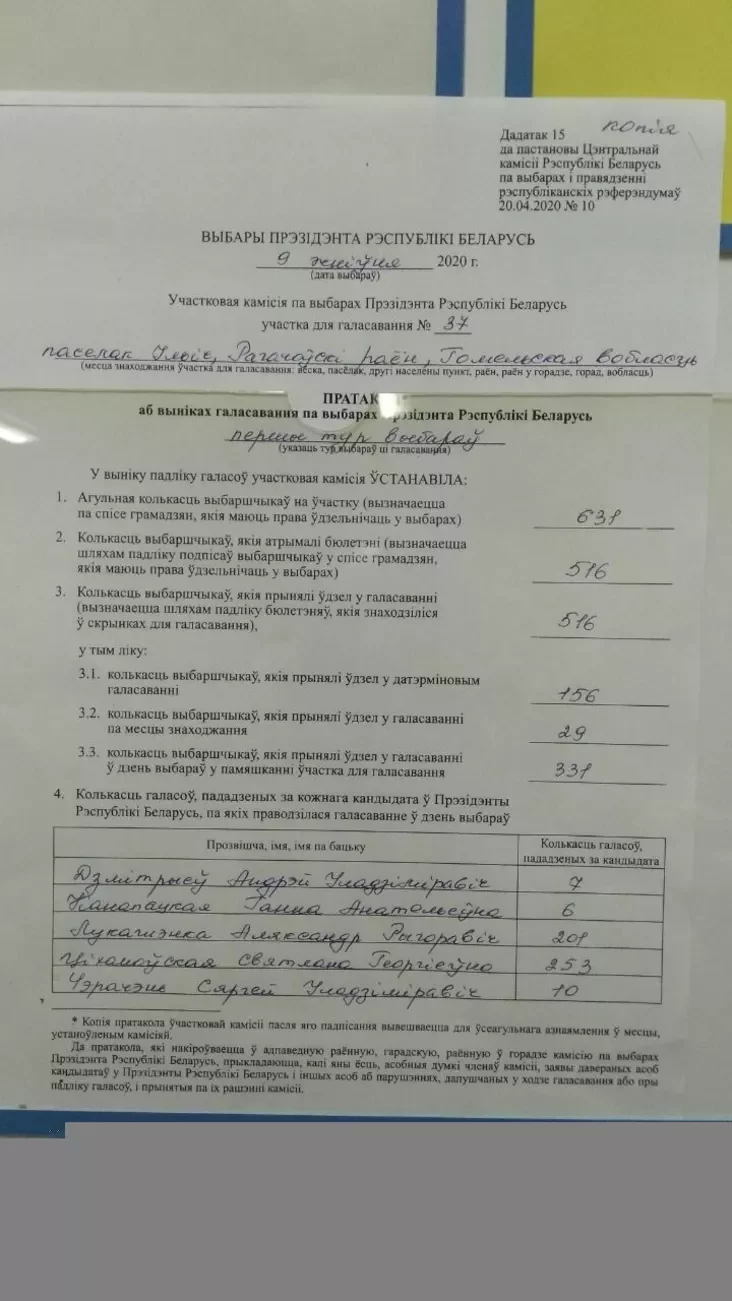 копія
Дадатак 15
да пастановы Цэнтральнай
камісіі Рэспублікі Беларусь
па выбарах і правядзенні
рэспубліканскіх рэферэндумаў
20.04.2020 № 10
ВЫБАРЫ ПРЭЗІДЭНТА РЭСПУБЛІКІ БЕЛАРУСЬ
9 жніўня 2020 г.
(дата выбараў)
Участковая камісія па выбарах Прэзідэнта Рэспублікі Беларусь
участка для галасавання № 37
паселак Ільіч, Рагачоўскі раён, Гомельская вобласць
(месца знаходжання ўчастка для галасавання: вёска, пасёлак, другі населены пункт, раён, раён у горадзе, горад, вобласць)
ПРАТАК
аб выніках галасавання па выбарах рэзідэнта Рэспублікі Беларусь
першы тур выбараў
(указаць тур выбараў ці галасавання)
У выніку падліку галасоў участковая камісія ЎСТАНАВІЛА:
1. Агульная колькасць выбаршчыкаў на ўчастку (вызначаецца
па спісе грамадзян, якія маюць права ўдзельнічаць у выбарах) 631
2. Колькасць выбаршчыкаў, якія атрымалі бюлетэні (вызначаецца
шляхам падліку подпісаў выбаршчыкаў у спісе грамадзян,
якія маюць права ўдзельнічаць у выбарах) 516
3. Колькасць выбаршчыкаў, якія прынялі ўдзел у галасаванні
(вызначаецца шляхам падліку бюлетэняў, якія знаходзіліся
ў скрынках для галасавання), 516
у тым ліку:
3.1. колькасць выбаршчыкаў, якія прынялі ўдзел у датэрміновым
галасаванні 156
3.2. колькасць выбаршчыкаў, якія прынялі ўдзел у галасаванні
па месцы знаходжання 29
3.3. колькасць выбаршчыкаў, якія прынялі ўдзел у галасаванні
ў дзень выбараў у памяшканні ўчастка для галасавання 331
4. Колькасць галасоў, пададзеных за кожнага кандыдата ў Прэзідэнты
Рэспублікі Беларусь, па якіх праводзілася галасаванне ў дзень выбараў
Прозвішча, імя, імя па бацьку Колькасць галасоў,
пададзеных за кандыдата
Дзмітрыеў Андрэй Уладзіміравіч 7
Канапацкая Ганна Анатольеўна 6
Лукашэнка Аляксандр Рыгоравіч 201
Ціханоўская Святлана Георгіеўна 253
Чэрачэнь Сяргей Уладзіміравіч 10
* Копія пратакола ўчастковай камісіі пасля яго падпісання вывешваецца для ўсеагульнага азнаямлення ў месцы,
устаноўленым камісіяй.
Да пратакола, які накіроўваецца ў адпаведную раённую, гарадскую, раённую ў горадзе камісію па выбарах
Прэзідэнта Рэспублікі Беларусь, прыкладаюцца, калі яны ёсць, асобныя думкі членаў камісіі, заявы давераных асоб
кандыдатаў у Прэзідэнты Рэспублікі Беларусь і іншых асоб аб парушэннях, дапушчаных у ходзе галасавання або пры
падліку галасоў, і прынятыя па іх рашэнні камісіі.